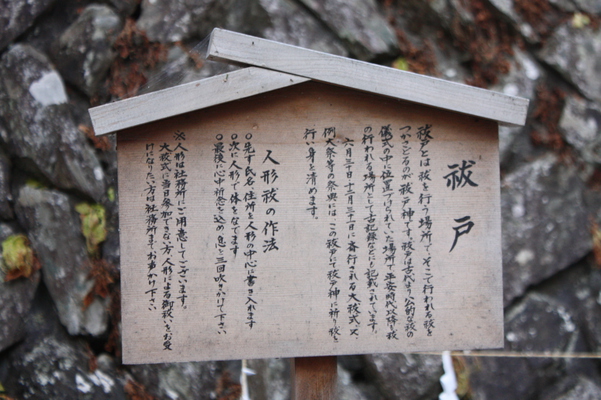 祓戸
祓戸とは祓を行う場所で、そこで行われる祓を
つかさどるのが祓戸神です。祓戸は古代より公的な祓の
儀式の中に位置づけられていた場所で平安時代以降祓
の行われる場所として古記録などにも記載されています。
六月三十日十二月三十一日に斎行される大祓式、又
例大祭等の祭典には、この祓戸で祓戸神に祈り祓を
行い身を清めます。
人形祓の作法
○先ず氏名・住所を人形の中心に書き入れます
○次に人形で体をなでます
○最後に心中祈念を込め、息を三回吹きかけて下さい
※人形は社務所にご用意してございます。
大祓式に当日参加できない方、人形による御祓いをお受
けになりたい方は社務所までお声かけ下さい